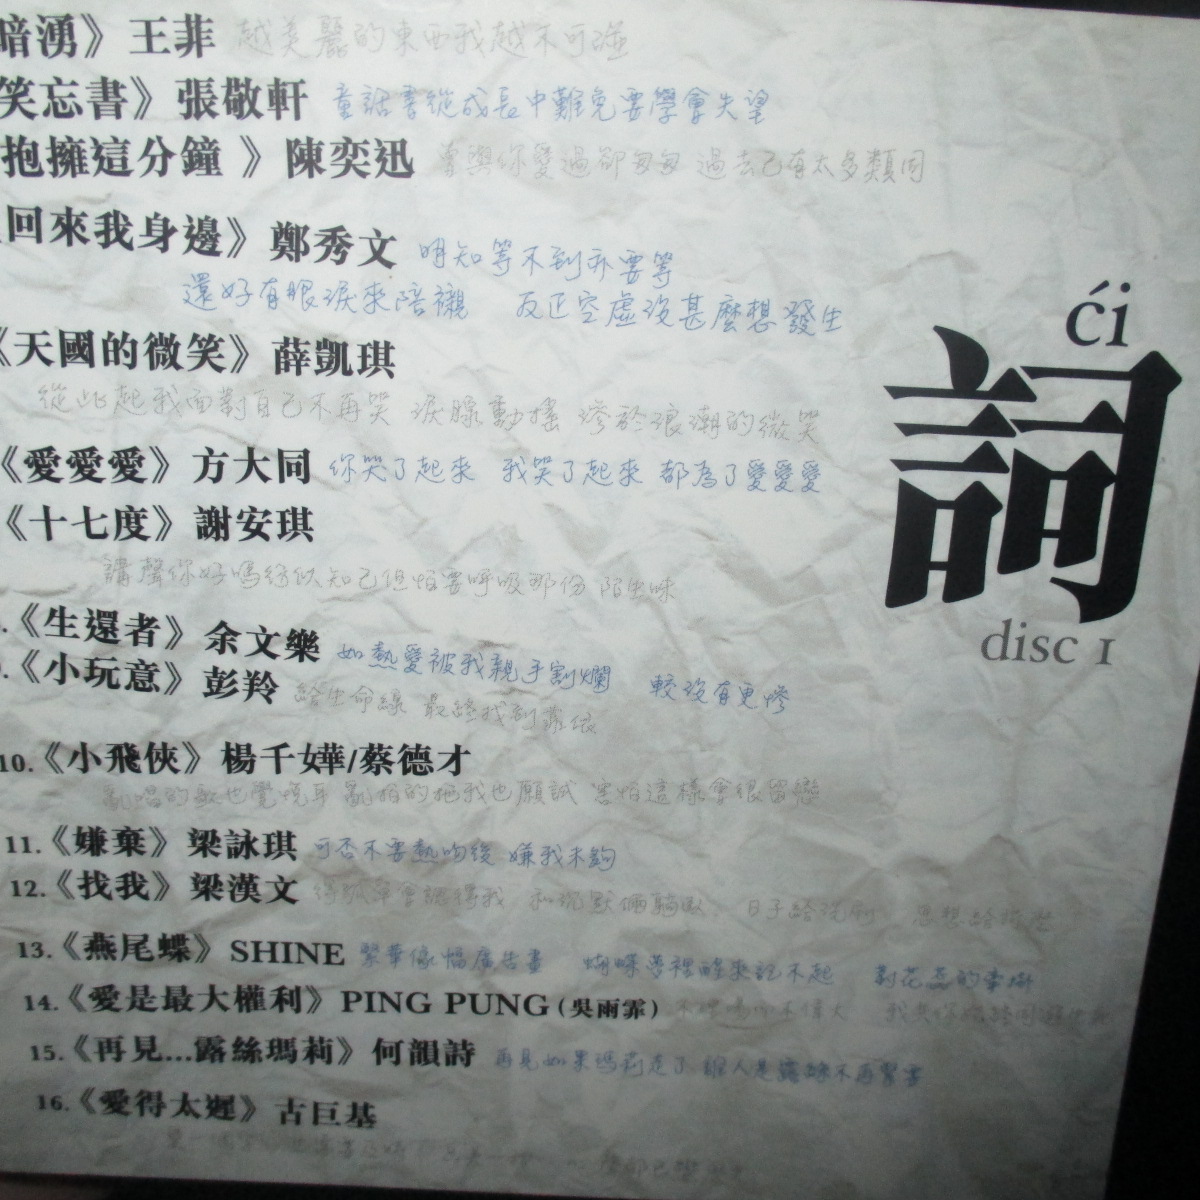 暗湧》王菲 越美麗的東西我越不可碰
笑忘書》張敬軒 童話書從成長中難免要學會失望
抱擁這分鐘 》陳奕迅 曾與你愛過卻匆匆 過去已有太多類同
回來我身邊》鄭秀文 明知等不到亦要等
還好有眼淚來陪襯 反正空虛沒甚麼想發生
《天國的微笑》薛凱琪
從此起我面對自己不再哭 淚腺動搖 滲於浪潮的微笑
《愛愛愛》方大同 你哭了起來 我哭了起來 都為了愛愛愛
《十七度》謝安琪
講聲你好嗎紛似知己但怕要呼吸那份陌生味
《生還者》余文樂 如熱愛被我親手割爛 較沒有更慘
《小玩意》彭羚 給生命線 最終找到
10.《小飛俠》楊千嬅/蔡德才
亂唱的歌也覺悅耳 亂拍的拖我也願試 害怕這樣會很留戀
11.《嫌棄》梁詠琪 可否不要熱吻後 嫌我未夠
12.《找我》梁漢文
13.《燕尾蝶》SHINE 繁華像幅廣告畫 蝴蝶夢裡醒來記不起 對花蕊的
14.《愛是最大權利》PING PUNG(吳雨霏)
15.《再見...露絲瑪莉》何韻詩 再見如果瑪莉走了
16.《愛得太遲》古巨基
ći
詞
disc 1